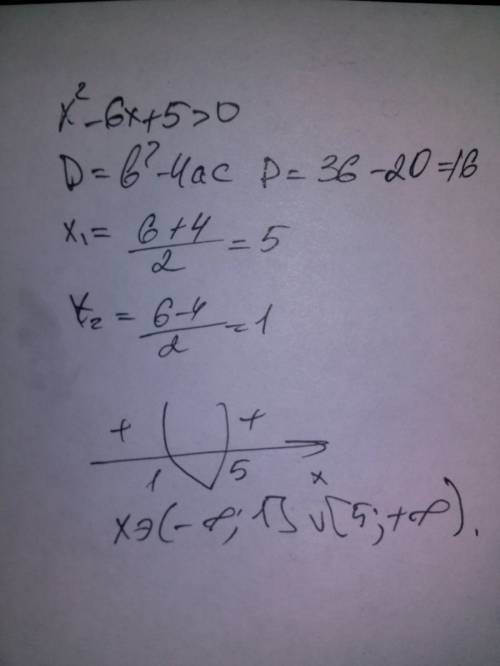 x² - 6x + 5 > 0
D = b² - 4ac D = 36 - 20 = 16
x₁ = (6 + 4)/2 = 5
x₂ = (6 - 4)/2 = 1
+ +
1 5 x
x ∋ (-∞; 1] ∪ [5; +∞).